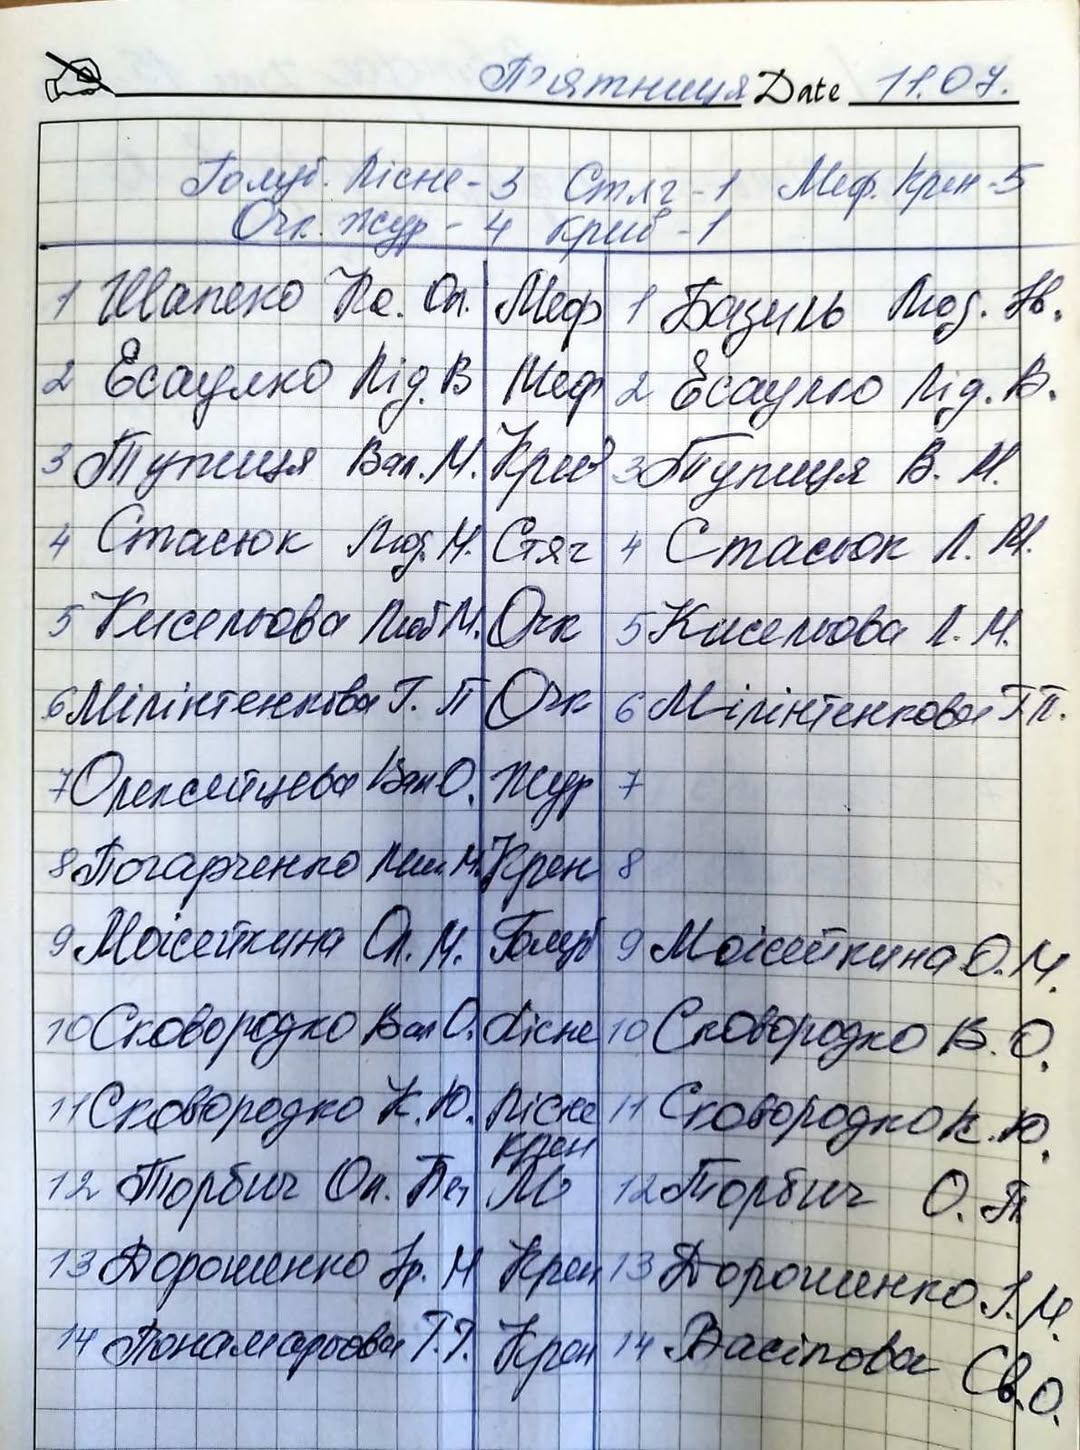 П'ятниця Date 11.07.
Голуб. Лісне-3 Стяг-1 Меф. Крен-5
Очк. Жур-4 Крив-1
1 Шапеко Кс. Ол. Меф 1 Базиль Люб. Ів.
2 Єсаулко Лід. В Меф 2 Єсаулко Лід. В.
3 Тупиця Вал. М. Крив 3 Тупиця В. М.
4 Стасюк Люб. М. Стяг 4 Стасюк Л. М.
5 Кисельова Люб М. Очк 5 Кисельова Л. М.
6 Мілінтенкова Г. П Очк 6 Мілінтенкова Г П.
7 Олексейцева Вал О. Жур 7
8 Погарченко М. Крен 8
9 Моісейкина Ол. М. Голуб 9 Моісейкина О. М.
10 Сковородко Вал О. Лісне 10 Сковородко В. О.
11 Сковородко К. Ю. Лісне 11 Сковородко К. Ю.
12 Торбич Ол. Пет Крен М 12 Торбич О. П
13 Дорошенко Ір. М Крен 13 Дорошенко І. М.
14 Понамарьова Т. Г. Крен 14 Васілова Св. О.